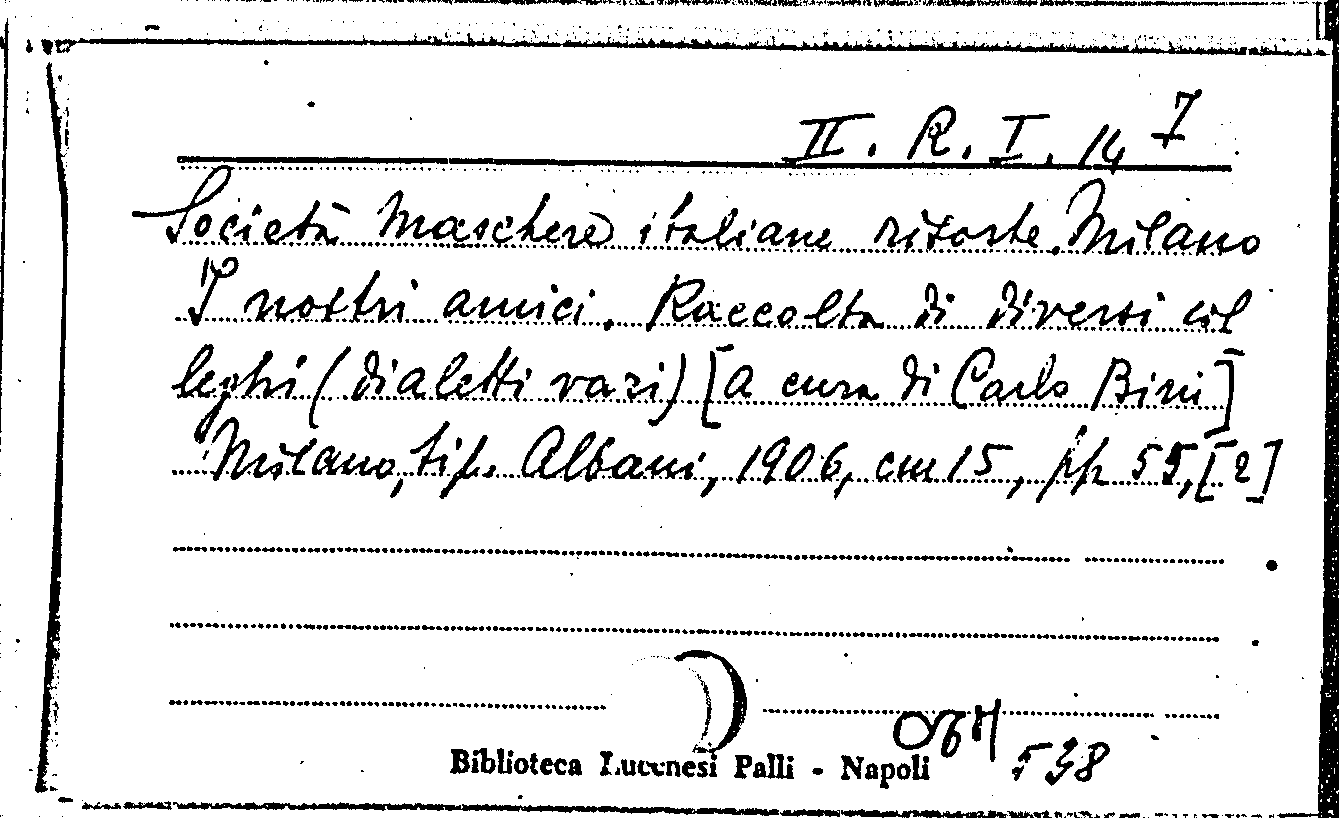 II. R. I. 14 7
Società Maschere italiane risorte. Milano
I nostri amici. Raccolta di diversi col
leghi (dialetti vari) [a cura di Carlo Bini]
Milano, tip. Albani, 1906, cm 15, pp 55, [2]
Biblioteca Lucchesi Palli - Napoli
538